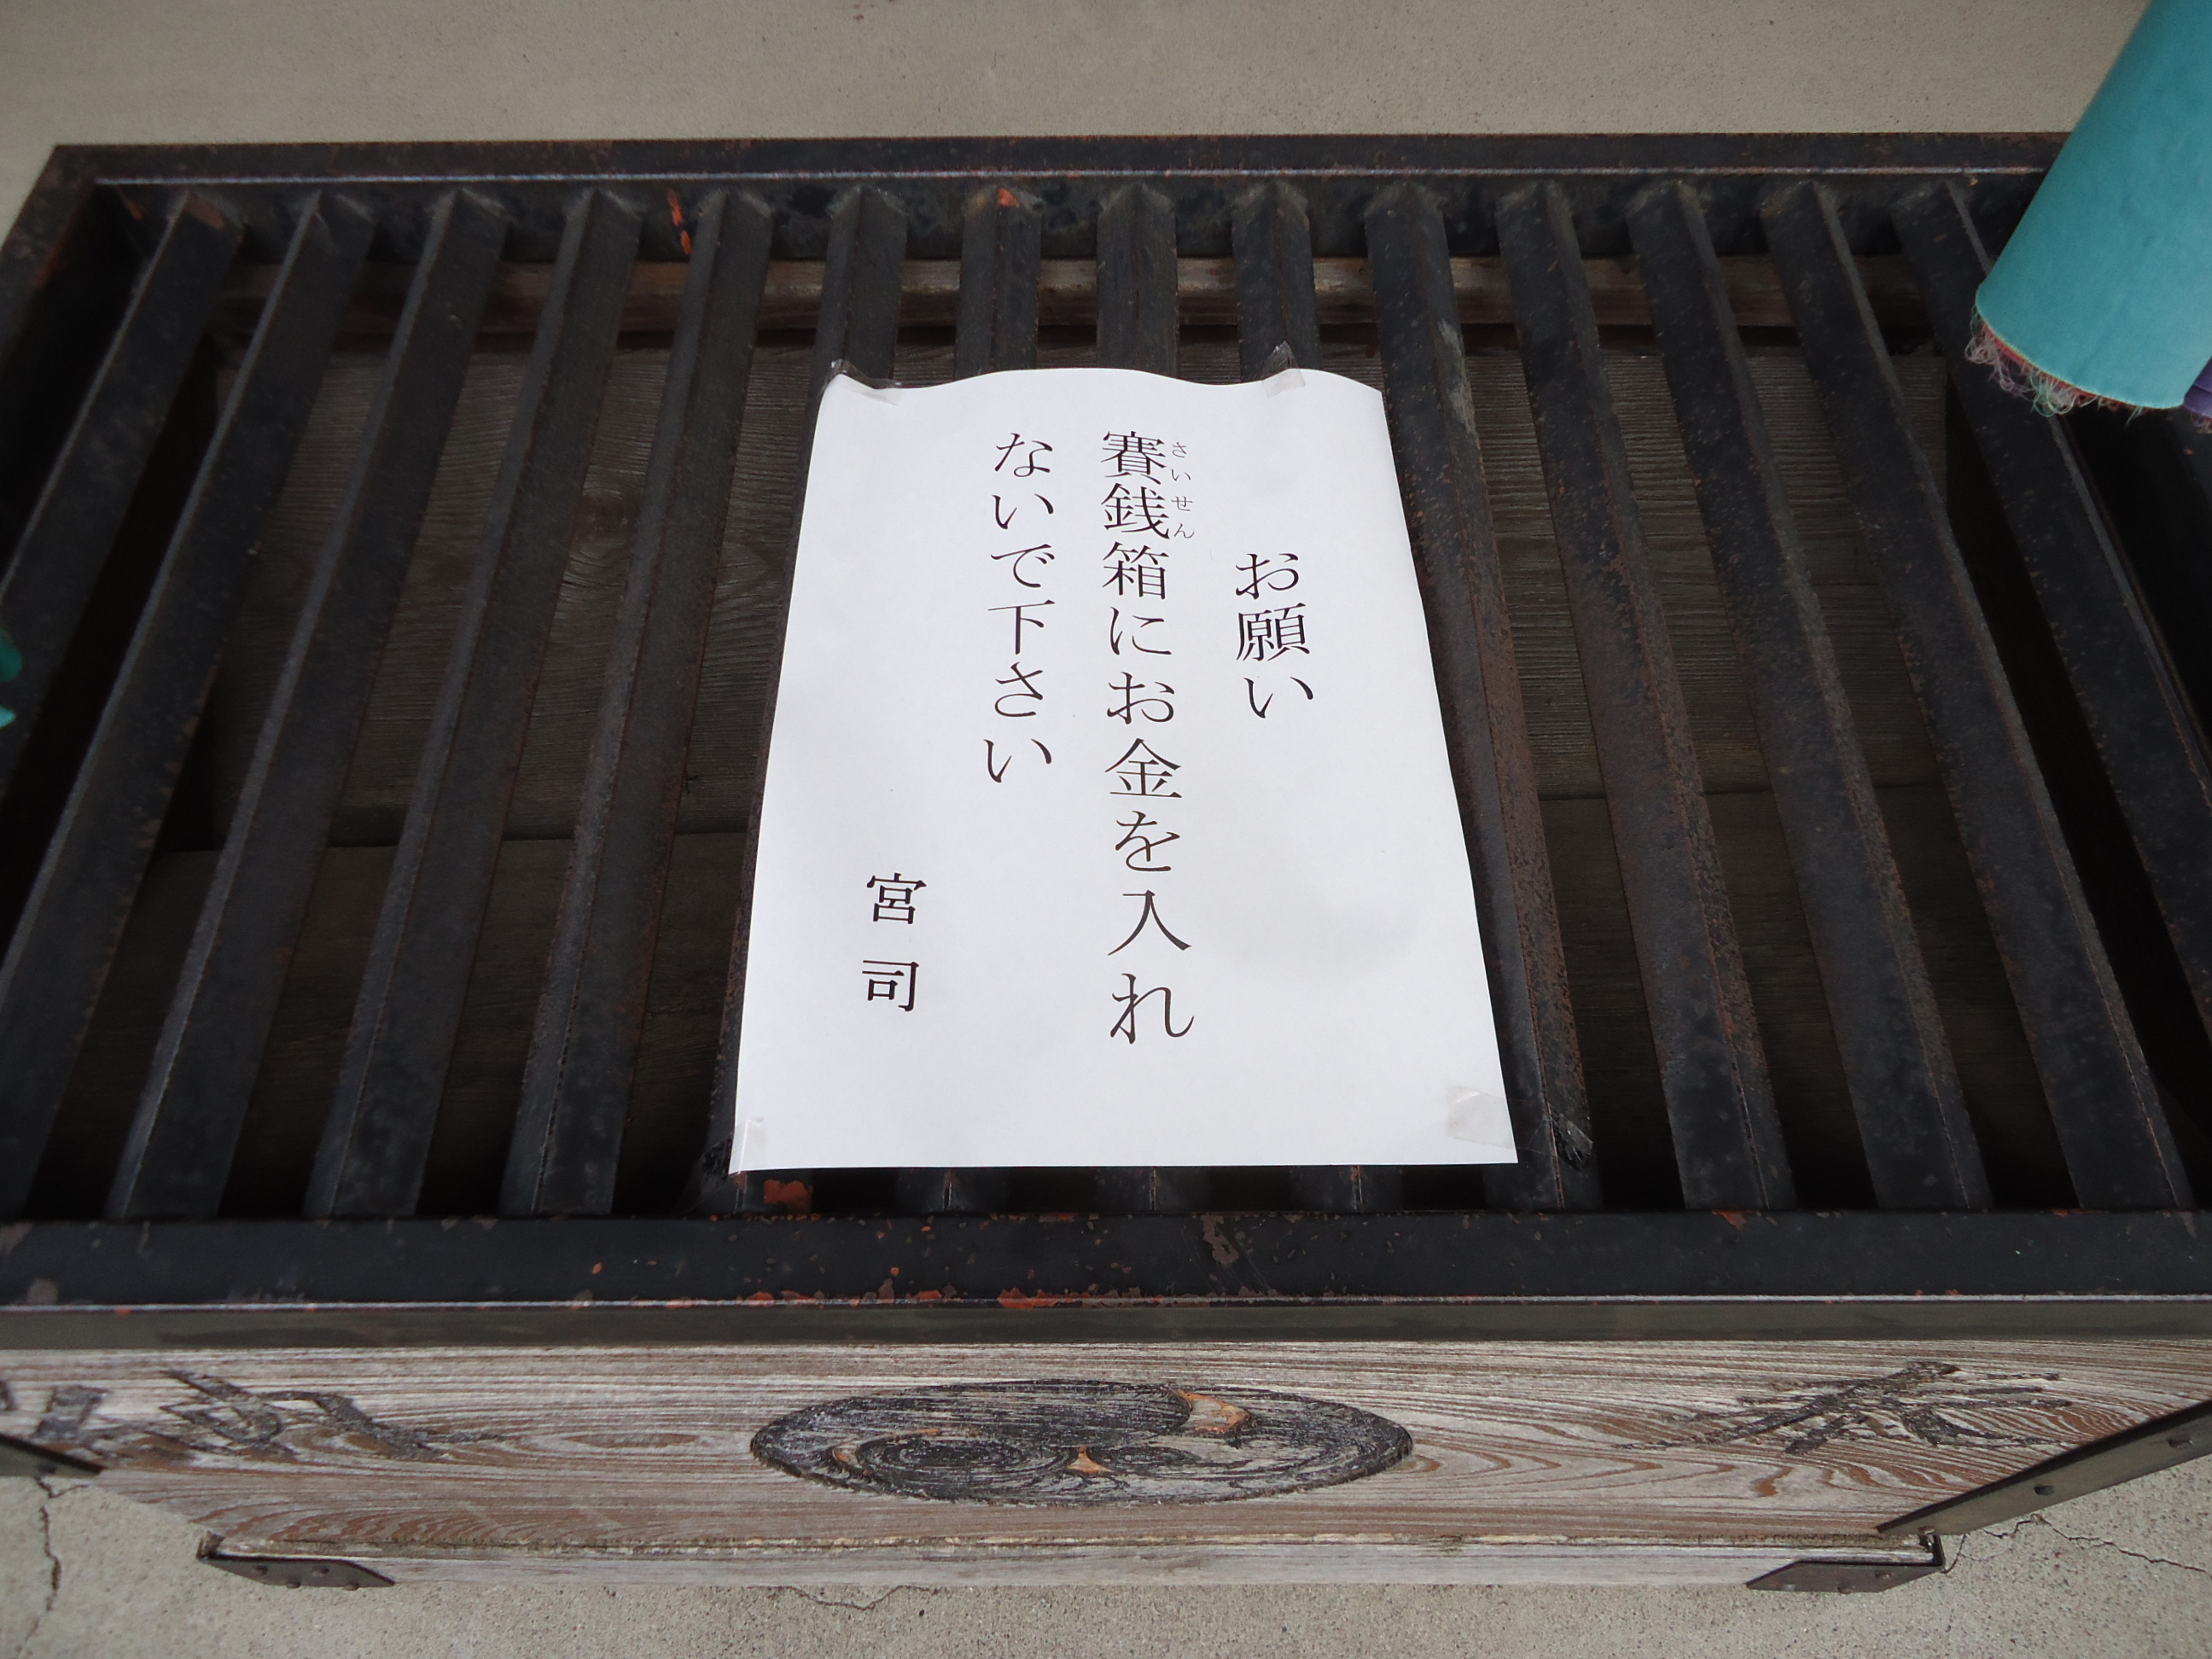 お願い
賽銭箱にお金を入れ
さいせん
ないで下さい
宮司